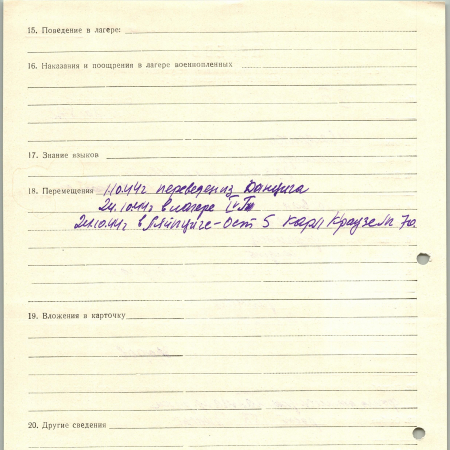 15. Поведение в лагере:
16. Наказания и поощрения в лагере военнопленных
17. Знание языков
18. Перемещения 1.10.44г переведен из Данцига
24.10.44г в лагере IV
24.10.44г в Лейпциге-Ост 5 Карл Краузе
19. Вложения в карточку
20. Другие сведения